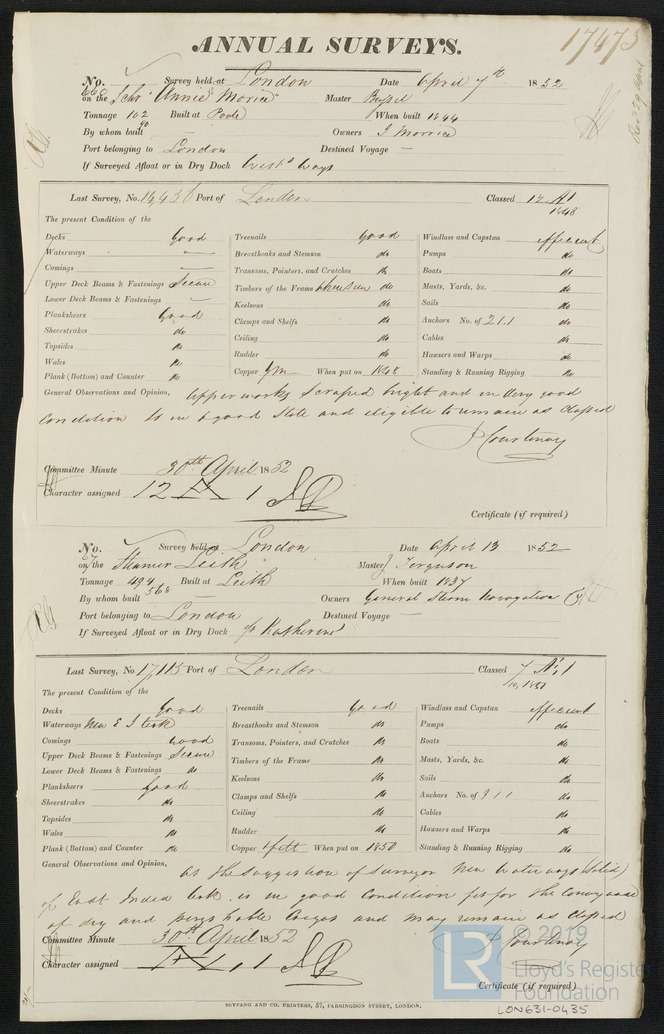 17473
ANNUAL SURVEYS.
No. Survey held at London Date April 7th 1852
on the Schr "Annie Morice" Master
Tonnage 102 Built at Poole When built 1844
90
By whom built — Owners J Morrice
Port belonging to London Destined Voyage —
If Surveyed Afloat or in Dry Dock
Last Survey, No. 16,436 Port of London Classed 12 A1
1848
The present Condition of the
Decks Good
Waterways —
Comings —
Upper Deck Beams & Fastenings Secure
Lower Deck Beams & Fastenings —
Planksheers Good
Sheerstrakes do
Topsides do
Wales do
Plank (Bottom) and Counter do
Treenails good
Breasthooks and Stemson do
Transoms, Pointers, and Crutches do
Timbers of the Frame when seen do
Keelsons do
Clamps and Shelfs do
Ceiling do
Rudder do
Copper Ym When put on 1848
Windlass and Capstan efficient
Pumps do
Boats do
Masts, Yards, &c. do
Sails do
Anchors No. of 2.1.1 do
Cables do
Hawsers and Warps do
Standing & Running Rigging do
General Observations and Opinion, Upper works scraped bright and in very good
condition Is in a good State and eligible to remain as classed
J Courtenay
Committee Minute 30th April 1852
Character assigned 12 A 1
Certificate (if required)
No. Survey held at London Date April 13 1852
on the Steamer Leith Master J Ferguson
Tonnage 494 Built at Leith When built 1837
568
By whom built — Owners General Steam Navagation Cy
Port belonging to London Destined Voyage —
If Surveyed Afloat or in Dry Dock St Katherines
Last Survey, No. 17,115 Port of London Classed A1
10, 1851
The present Condition of the
Decks Good
Waterways New E I teak
Comings Good
Upper Deck Beams & Fastenings Secure
Lower Deck Beams & Fastenings do
Planksheers Good
Sheerstrakes do
Topsides do
Wales do
Plank (Bottom) and Counter do
Treenails good
Breasthooks and Stemson do
Transoms, Pointers, and Crutches do
Timbers of the Frame do
Keelsons do
Clamps and Shelfs do
Ceiling do
Rudder do
Copper & felt When put on 1850
Windlass and Capstan efficient
Pumps do
Boats do
Masts, Yards, &c. do
Sails do
Anchors No. of 3 1 1 do
Cables do
Hawsers and Warps do
Standing & Running Rigging do
General Observations and Opinion, At the suggestion of Surveyor New Waterways (Solid)
of East India teak. is in good Condition fit for the Conveyance
of dry and perishable Cargos and may remain as classed
J Courtenay
Committee Minute 30th April 1852
Character assigned
Certificate (if required)
SEYFANG AND CO. PRINTERS, 57, FARRINGDON STREET, LONDON.
LR © 2019
Lloyd's Register
Foundation
LON631-0435